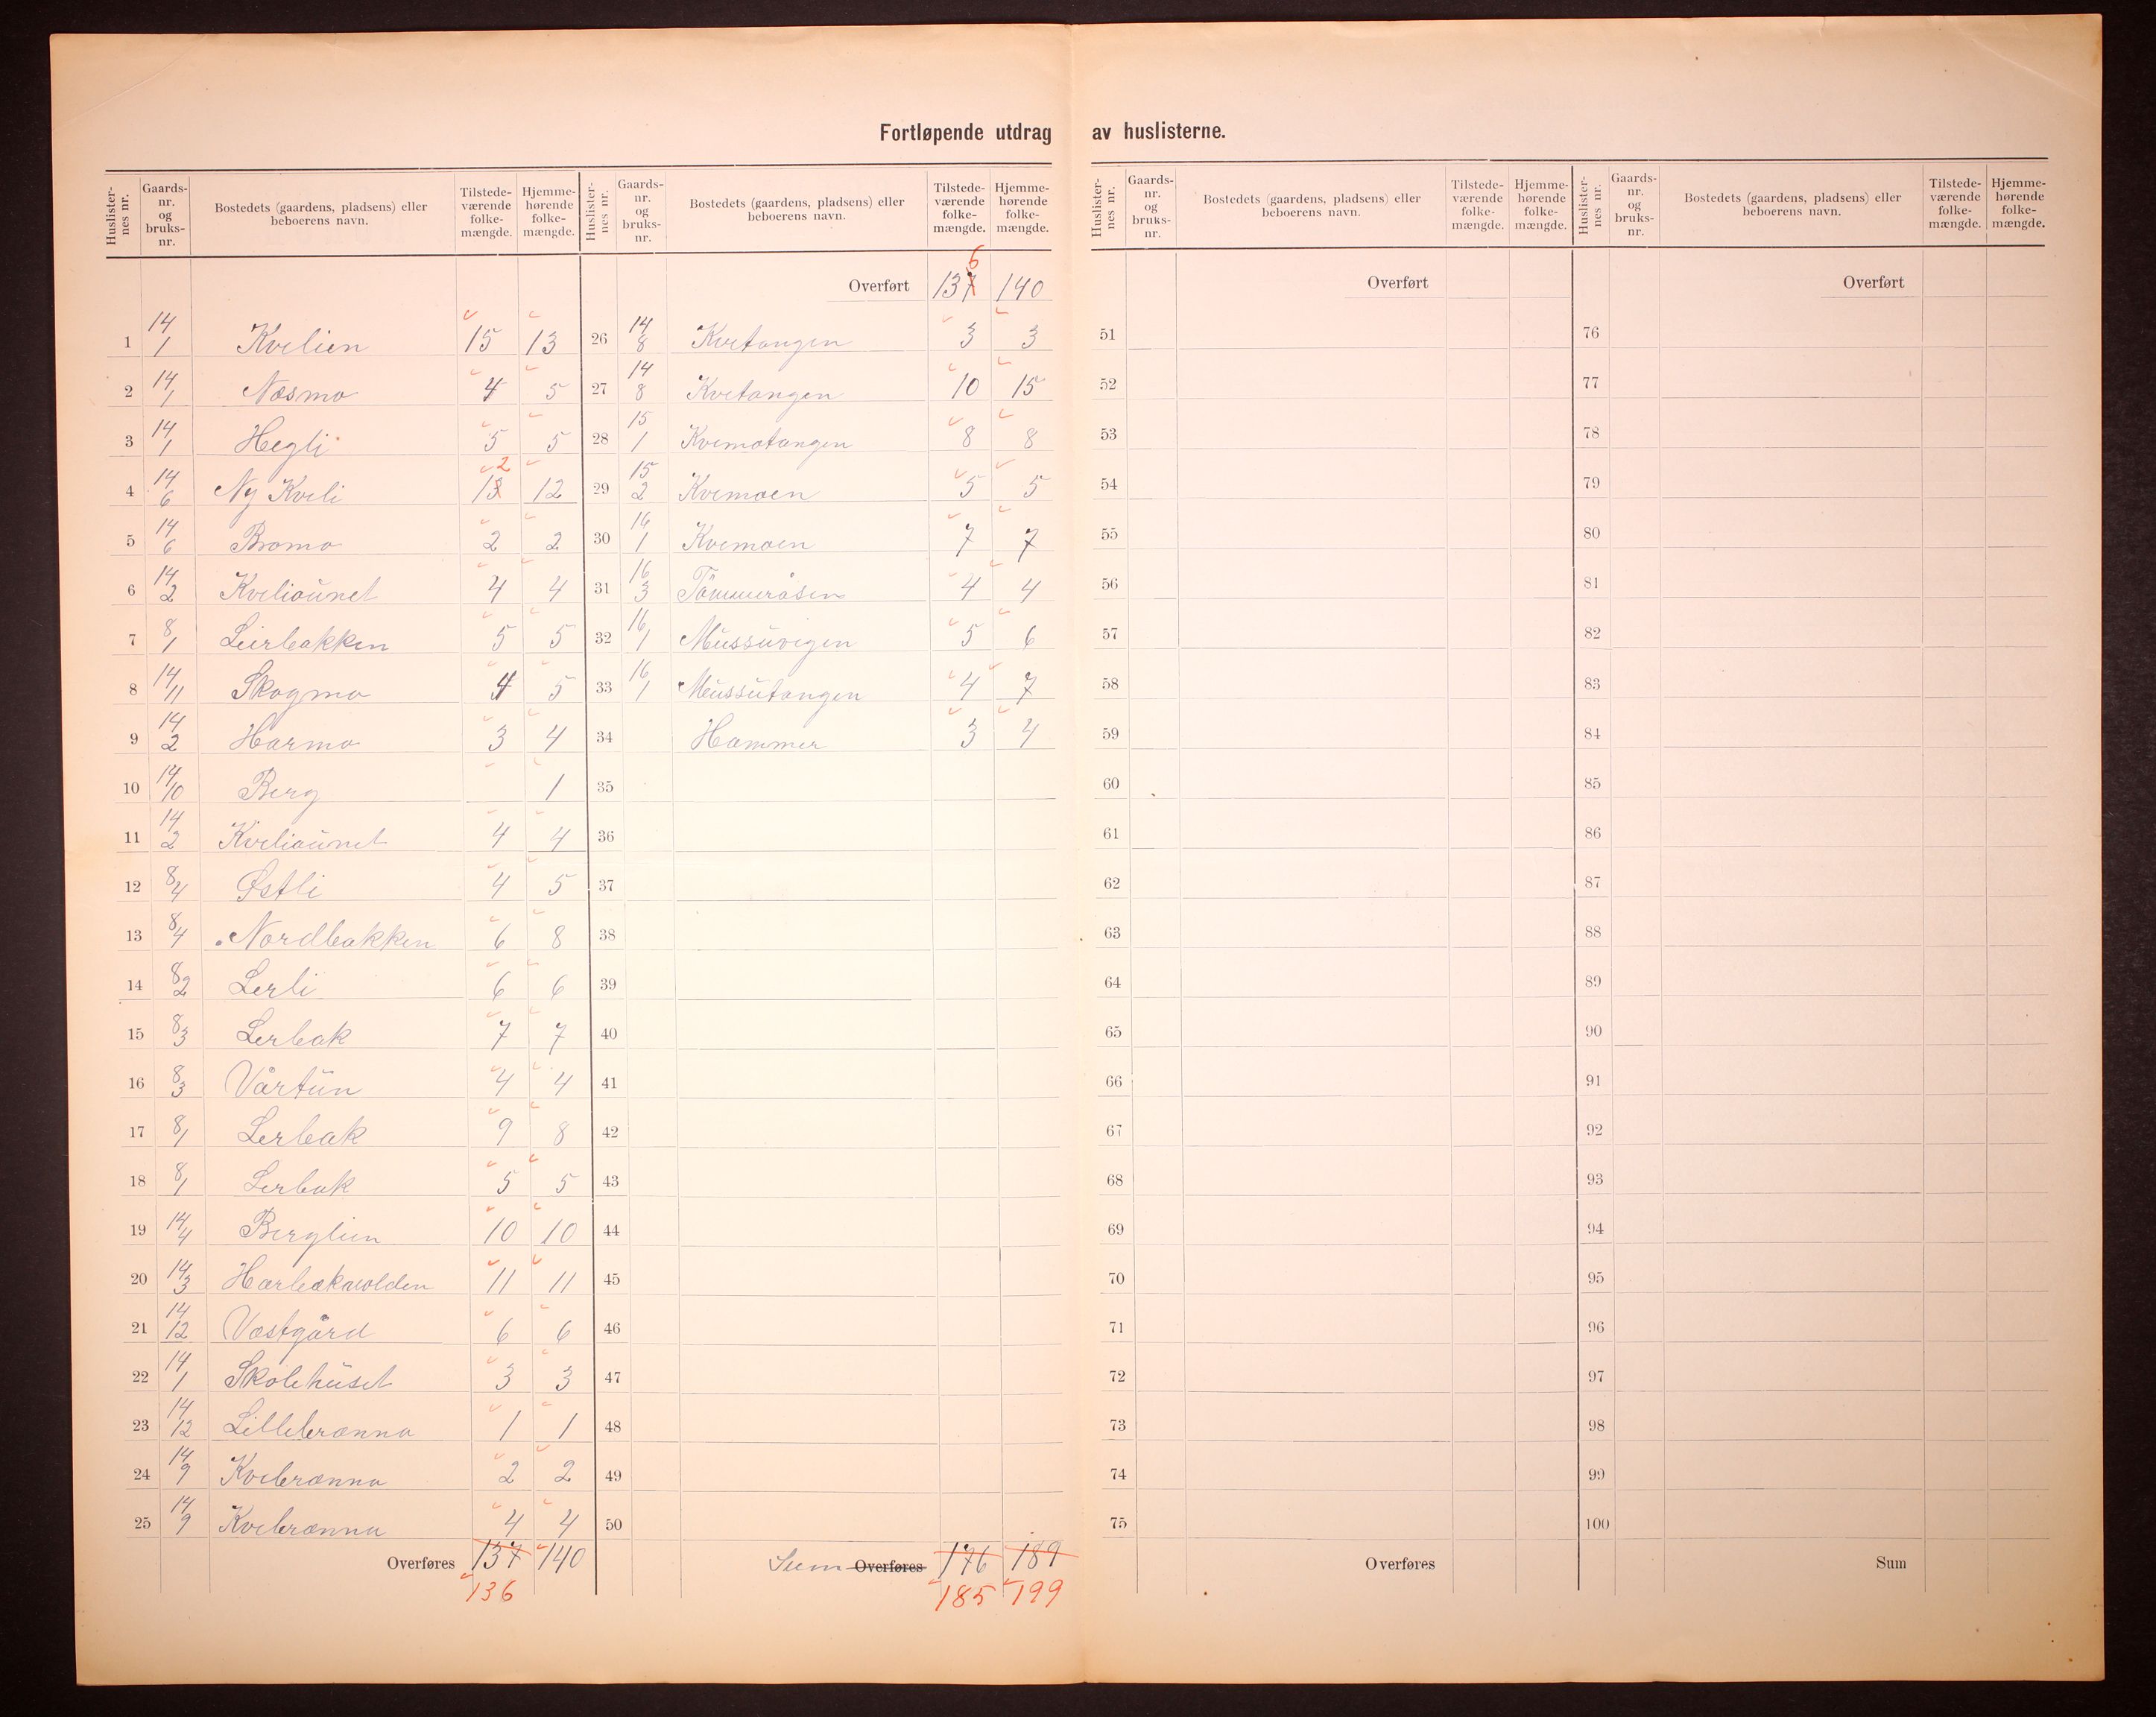 Fortløpende utdrag av huslisterne.
Huslisternes nr. | Gaards-nr. og bruks-nr. | Bostedets (gaardens, pladsens) eller beboerens navn. | Tilstedeværende folkemængde. | Hjemmehørende folkemængde.
1 14/1 Kvelien 15 13
2 14/1 Næsmo 4 5
3 14/1 Hegli 5 5
4 14/6 Ny Kveli 13 2 12
5 14/6 Bromo 2 2
6 14/2 Kveliaunet 4 4
7 8/1 Leirbakken 5 5
8 14/11 Skogmo 4 5
9 14/2 Harmo 3 4
10 14/10 Berg 1
11 14/2 Kveliaunet 4 4
12 8/4 Østli 4 5
13 8/4 Nordbakken 6 8
14 8/2 Lerli 6 6
15 8/3 Lerbak 7 7
16 8/3 Vårtun 4 4
17 8/1 Lerbak 9 8
18 8/1 Lerbak 5 5
19 14/4 Berglien 10 10
20 14/3 11 11
21 14/12 Vestgård 6 6
22 14/1 Skolehuset 3 3
23 14/12 Lillebrænna 1 1
24 14/9 Kvebrænna 2 2
25 14/9 Kvebrænna 4 4
Overføres 137 140
136
Huslisternes nr. | Gaards-nr. og bruks-nr. | Bostedets (gaardens, pladsens) eller beboerens navn. | Tilstedeværende folkemængde. | Hjemmehørende folkemængde.
Overført 137 6 140
26 14/8 Kvetangen 3 3
27 14/8 Kvetangen 10 15
28 15/1 Kvemotangen 8 8
29 15/2 Kvemoen 5 5
30 16/1 Kvemoen 7 7
31 16/3 Tömmeråsen 4 4
32 16/1 Mussuvigen 5 6
33 16/1 Mussutangen 4 7
34 Hammer 3 4
35
36
37
38
39
40
41
42
43
44
45
46
47
48
49
50
Sum Overføres 176 189
185 199
Huslisternes nr. | Gaards-nr. og bruks-nr. | Bostedets (gaardens, pladsens) eller beboerens navn. | Tilstedeværende folkemængde. | Hjemmehørende folkemængde.
Overført
51
52
53
54
55
56
57
58
59
60
61
62
63
64
65
66
67
68
69
70
71
72
73
74
75
Overføres
Huslisternes nr. | Gaards-nr. og bruks-nr. | Bostedets (gaardens, pladsens) eller beboerens navn. | Tilstedeværende folkemængde. | Hjemmehørende folkemængde.
Overført
76
77
78
79
80
81
82
83
84
85
86
87
88
89
90
91
92
93
94
95
96
97
98
99
100
Sum